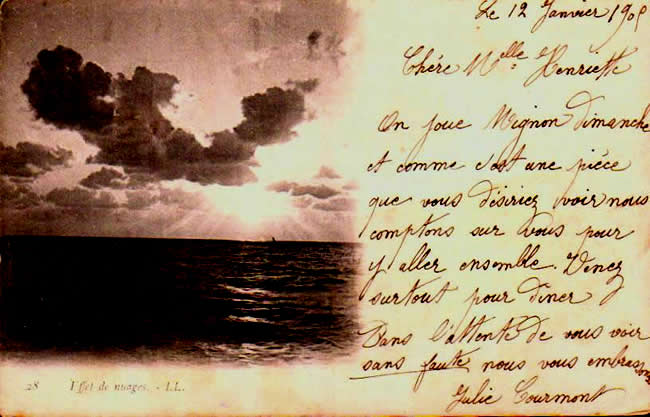 Le 12 Janvier 1905
Chére Melle Henriette
On joue Mignon dimanche
et comme c'est une piéce
que vous désiriez voir nous
comptons sur vous pour
y aller ensemble. Venez
surtout pour diner
Dans l'attente de vous voir
sans faute nous vous embrassons
Julie Courmont
28 Effet de nuages. - LL.